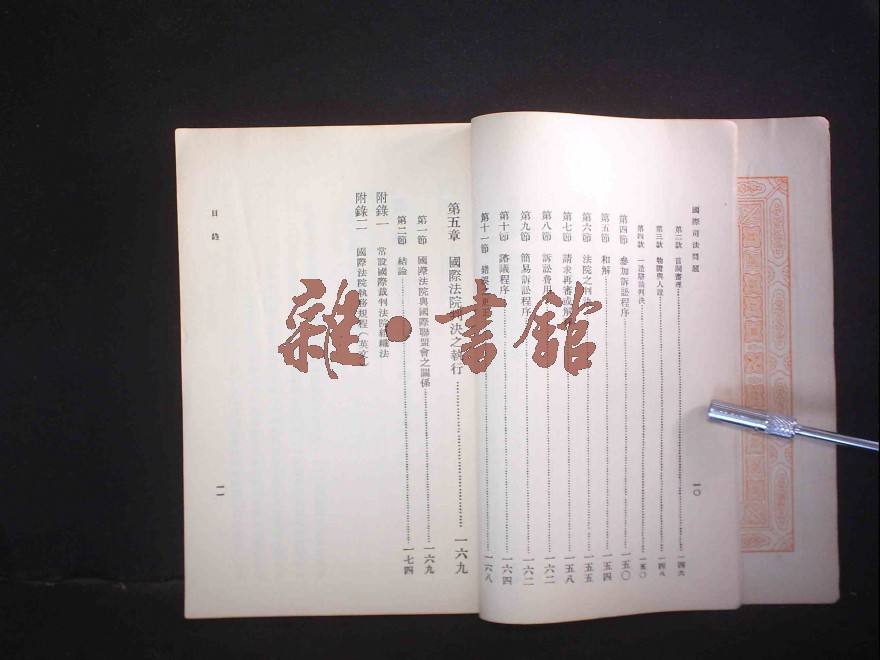 國際司法問題
第二款 言詞審理 一四六
第三款 物證與人證 一四八
第四款 一造辯論判決 一五〇
第四節 參加訴訟程序 一五〇
第五節 和解 一五四
第六節 法院之判決 一五五
第七節 請求再審或解釋 一五八
第八節 訴訟費用 一六二
第九節 簡易訴訟程序 一六二
第十節 諮議程序 一六四
第十一節 錯誤之更正 一六八
一〇
第五章 國際法院判決之執行 一六九
第一節 國際法院與國際聯盟會之關係 一六九
第二節 結論 一七四
附錄一 常設國際裁判法院組織法
附錄二 國際法院執務規程(英文)
目錄
一一
雜·書館